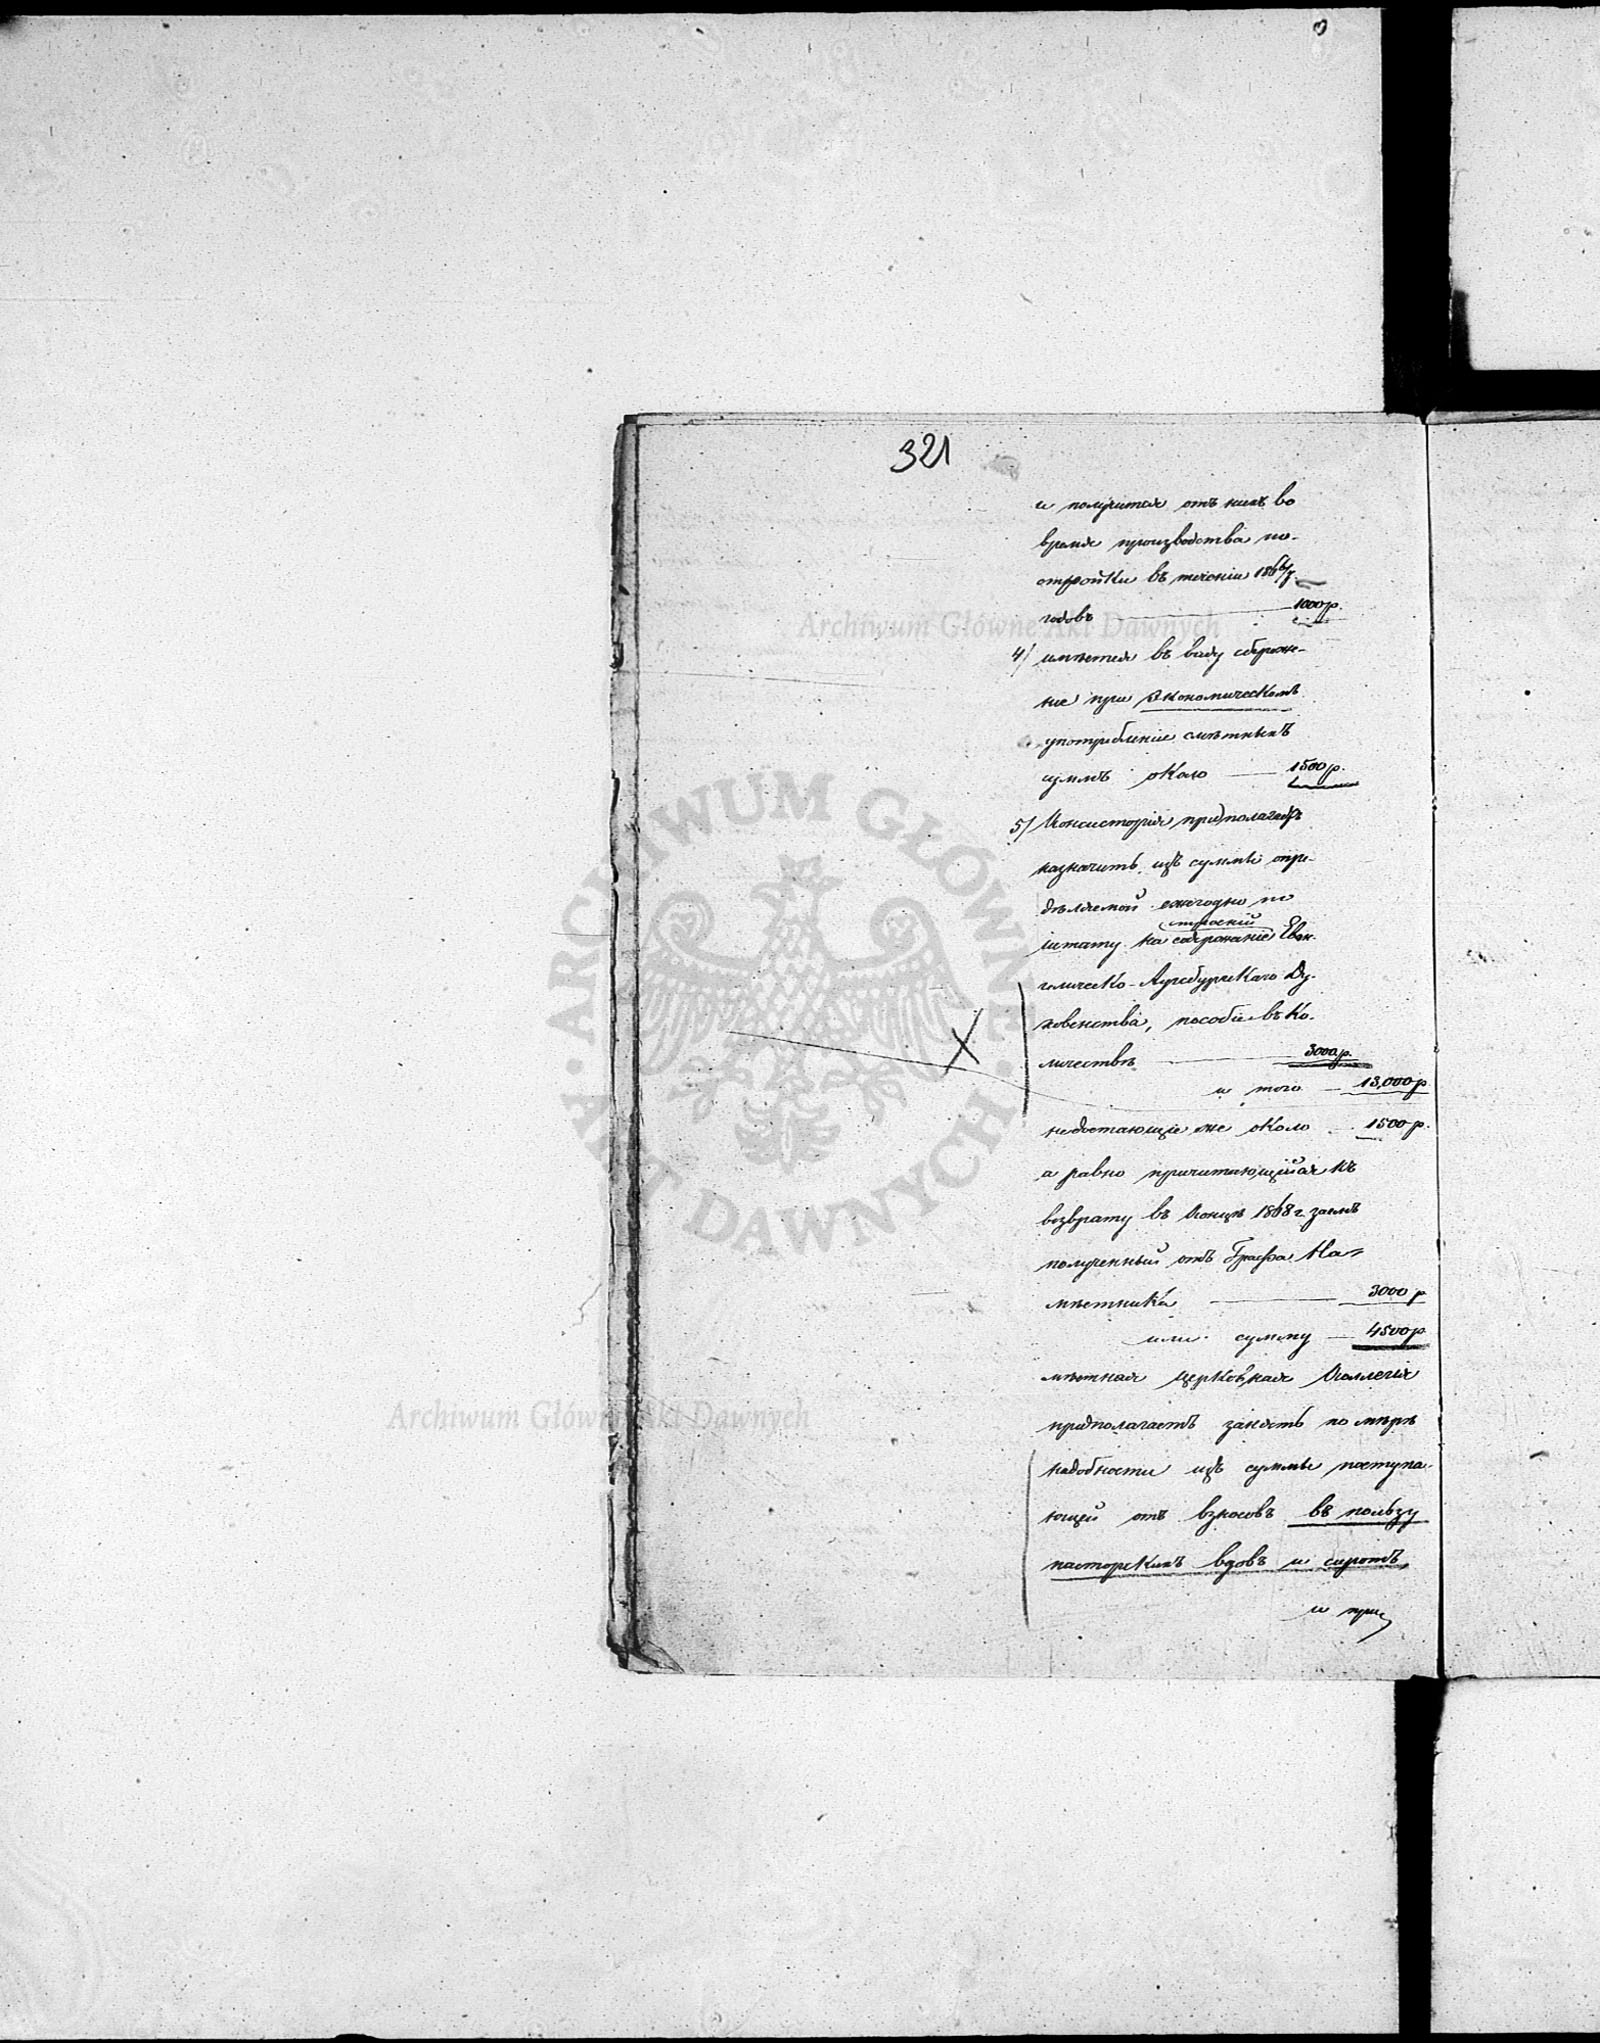 321
и получится отъ нихъ во
время производства по-
стройки въ теченіи 1866/7
годовъ — 1000 р.
4/ имѣется въ виду сбереже-
ніе при экономическомъ
употребленіи смѣтныхъ
суммъ около — 1500 р.
5/ Консисторія предполагаетъ
назначить изъ суммы опре-
дѣляемой ежегодно по
строеній
штату на содержаніе Еван-
гелическо-Аугсбургскаго Ду-
ховенства, пособіе въ ко-
личествѣ — 3000 р.
и того — 13,000 р
недостающіе же около — 1500 р.
а равно причитающійся къ
возврату въ концѣ 1868 г. заемъ
полученный отъ Графа На-
мѣстника — 3000 р
или сумму — 4500 р
мѣстная церковная Коллегія
предполагаетъ занять по мѣрѣ
надобности изъ суммы поступа-
ющей отъ взносовъ въ пользу
пасторскихъ вдовъ и сиротъ,
и при
Archiwum Główne Akt Dawnych
ARCHIWUM GŁÓWNE · AKT DAWNYCH ·
Archiwum Główne Akt Dawnych